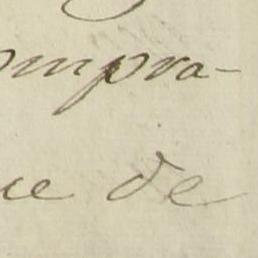 ompra-
ue de